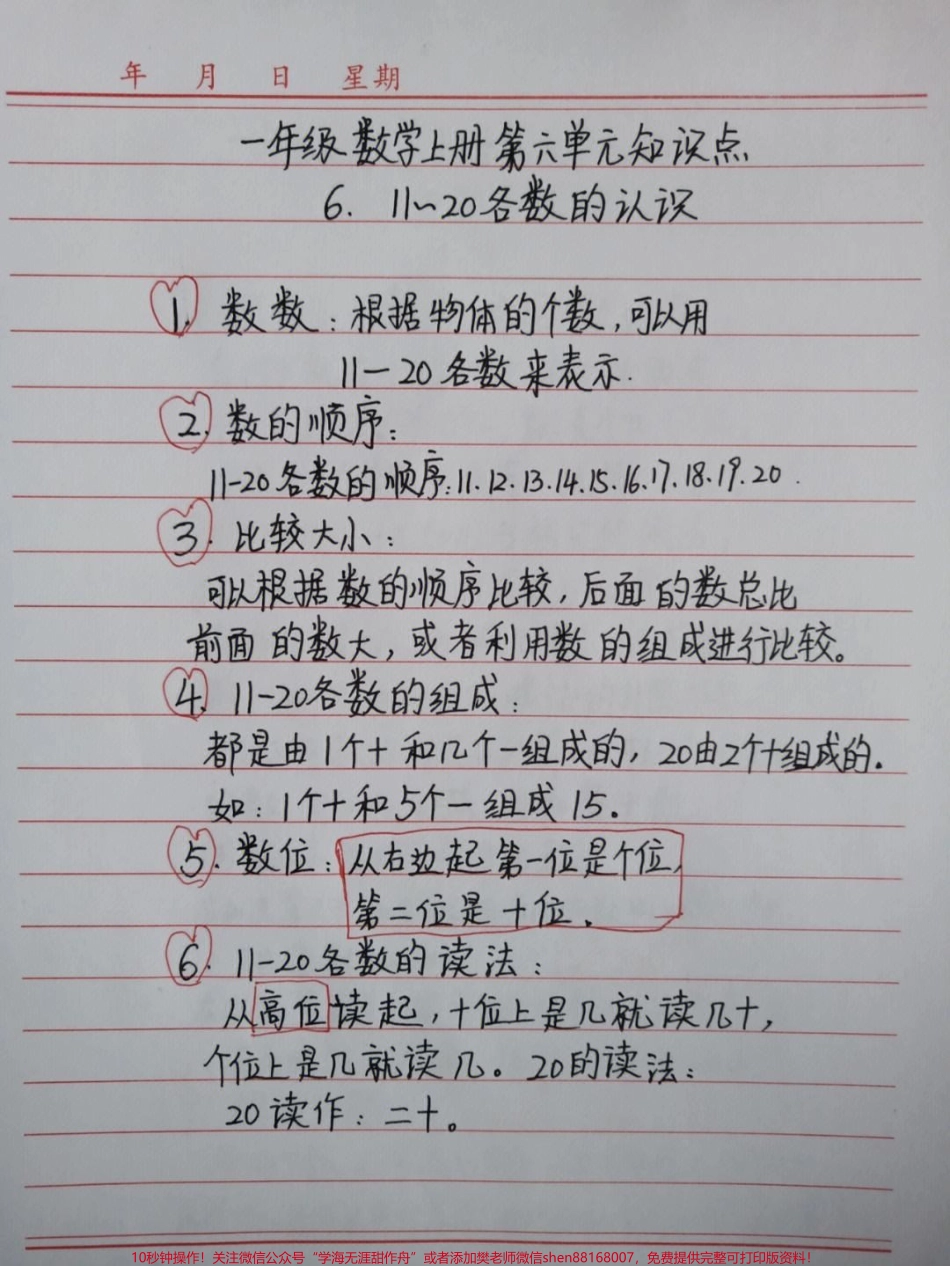 年 月 日 星期
一年级数学上册第六单元知识点
6. 11~20各数的认识
1. 数数:根据物体的个数,可以用
11-20各数来表示.
2. 数的顺序:
11-20各数的顺序:11.12.13.14.15.16.17.18.19.20.
3. 比较大小:
可以根据数的顺序比较,后面的数总比
前面的数大,或者利用数的组成进行比较。
4. 11-20各数的组成:
都是由1个十和几个一组成的,20由2个十组成的.
如:1个十和5个一组成15.
5. 数位:从右边起第一位是个位,
第二位是十位.
6. 11-20各数的读法:
从高位读起,十位上是几就读几十,
个位上是几就读几。20的读法:
20读作:二十。
10秒钟操作!关注微信公众号“学海无涯甜作舟”或者添加樊老师微信shen88168007,免费提供完整可打印版资料!